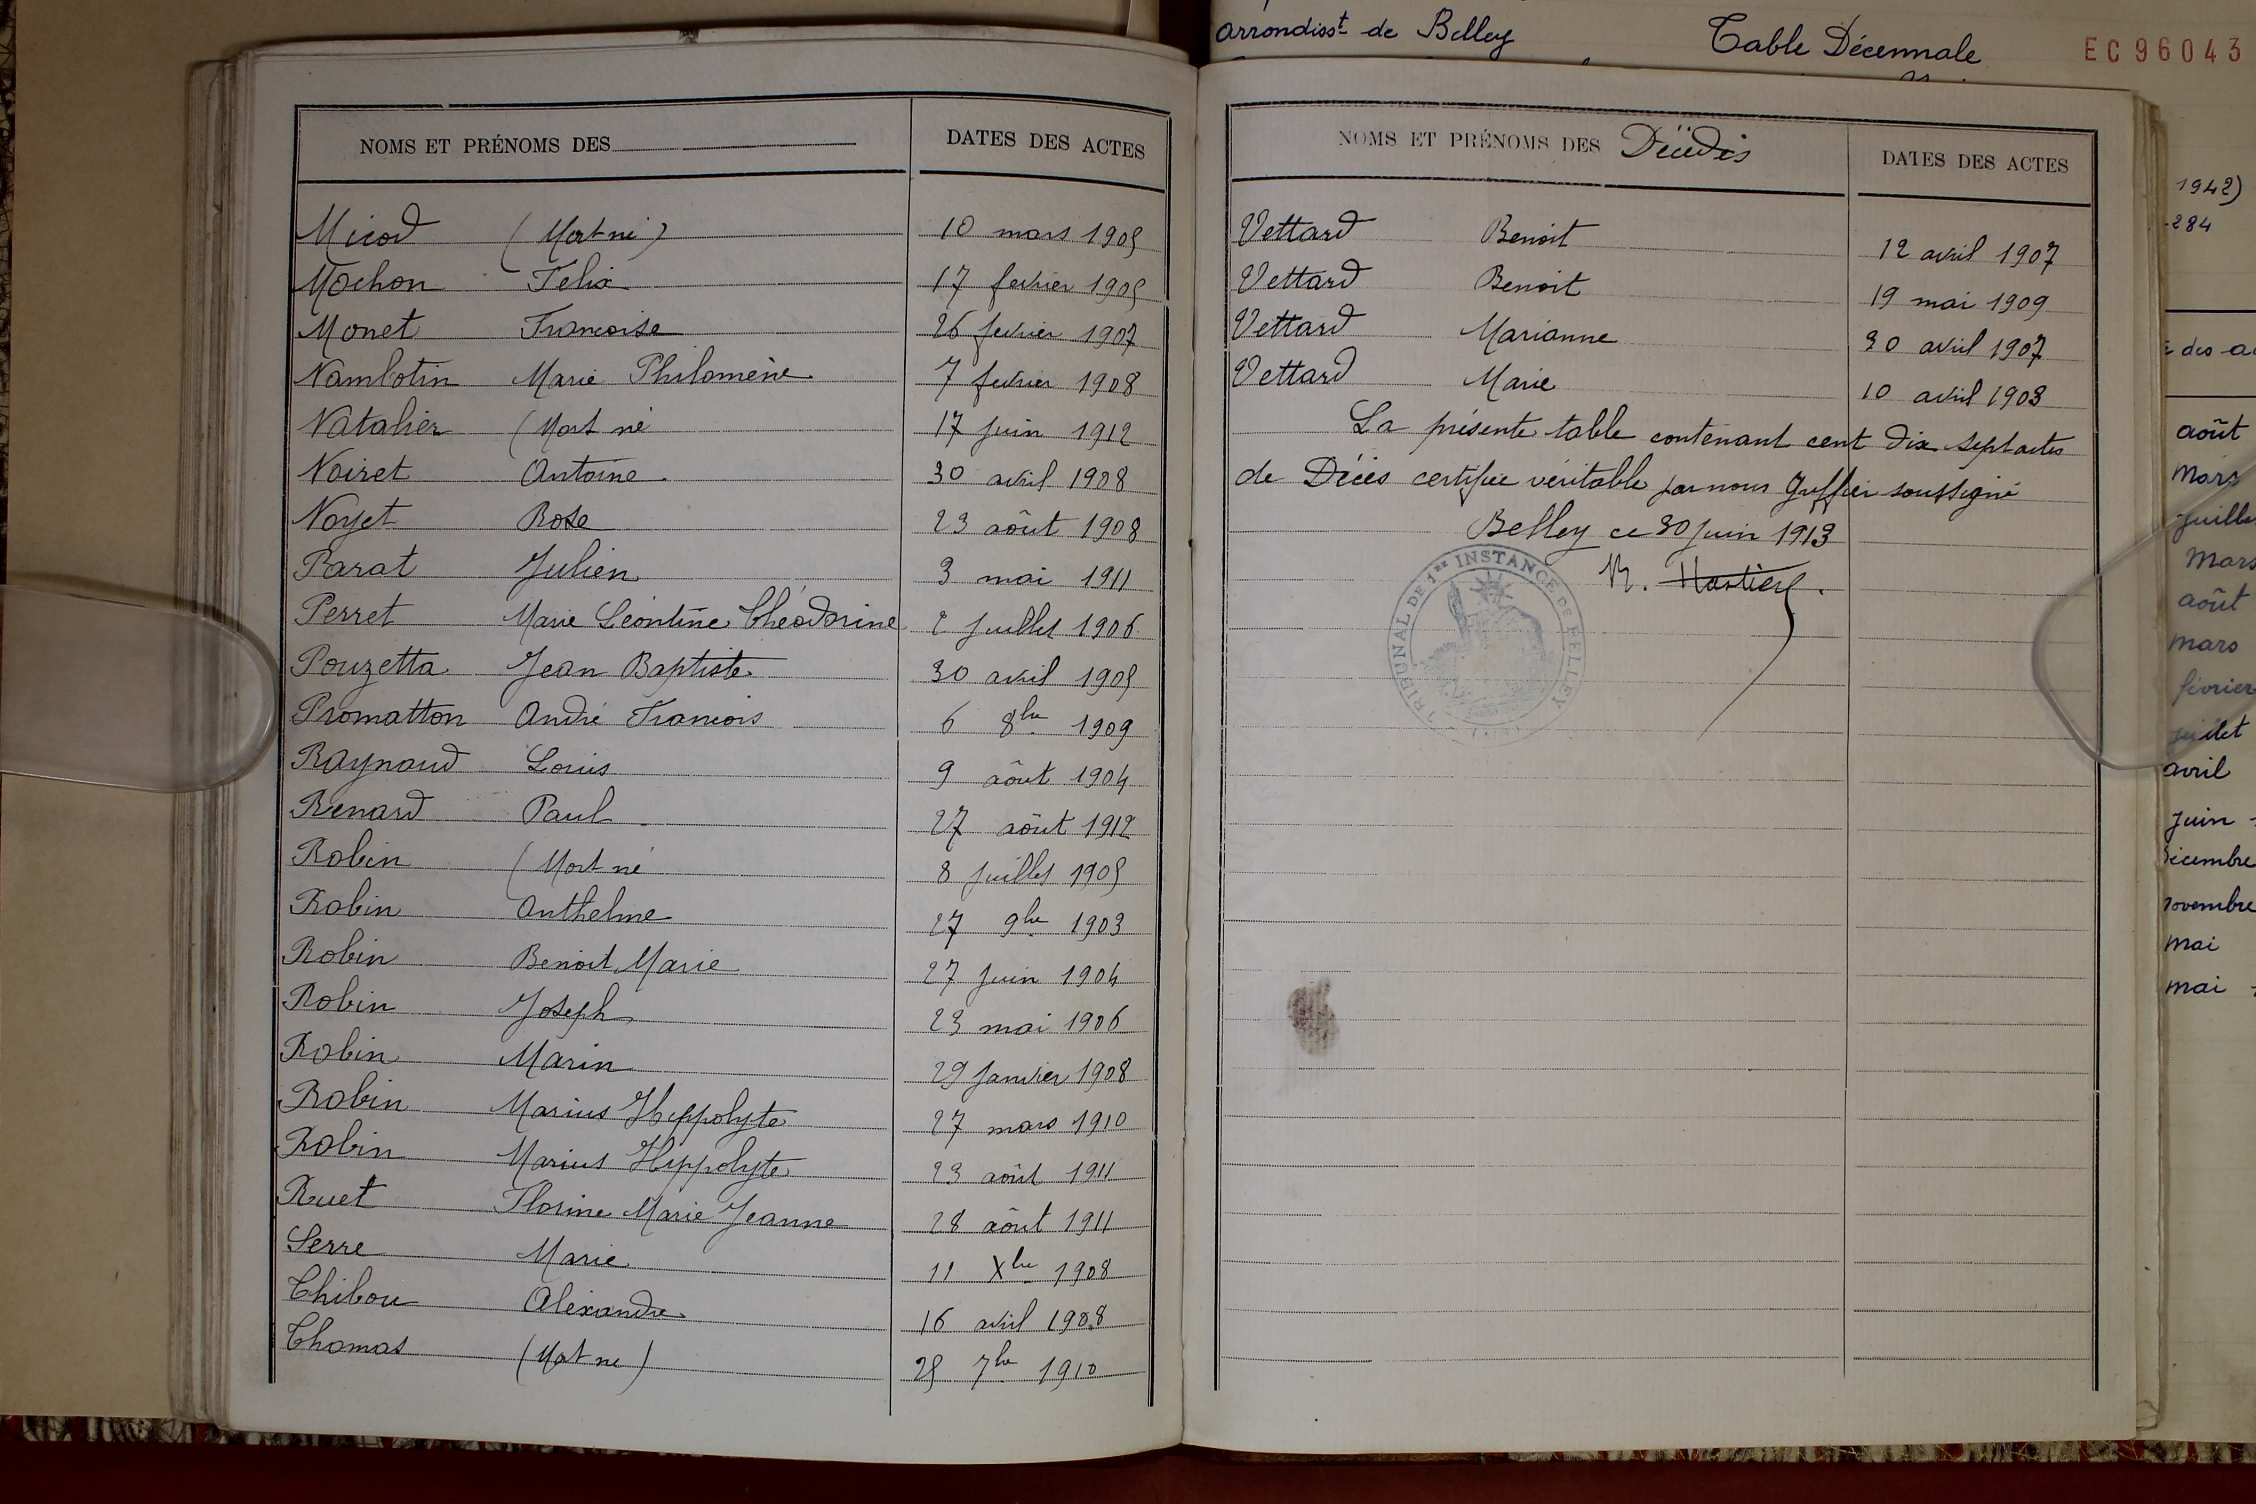 arrondisst de Belley Table Décennale EC96043
NOMS ET PRÉNOMS DES DATES DES ACTES
Micod (Mort né) 10 mars 1905
Mochon Felix 17 fevrier 1905
Monet Francoise 26 fevrier 1907
Nambotin Marie Philomène 7 fevrier 1908
Natalier (Mort né 17 juin 1912
Noiret Antoine 30 avril 1908
Noyet Rose 23 aôut 1908
Parat Julien 3 mai 1911
Perret Marie Léontine Théodorine 2 juillet 1906
Pouzetta Jean Baptiste 30 avril 1905
Promatton André Francois 6 8bre 1909
Raynaud Louis 9 aôut 1904
Renard Paul 27 aôut 1912
Robin (Mort né 8 juillet 1905
Robin Anthelme 27 9bre 1903
Robin Benoit Marie 27 juin 1904
Robin Joseph 23 mai 1906
Robin Marin 29 janvier 1908
Robin Marius Hippolyte 27 mars 1910
Robin Marius Hippolyte 23 août 1911
Ruet Florine Marie Jeanne 28 aôut 1911
Serre Marie 11 Xbre 1908
Thibou Alexandre 16 avril 1908
Thomas (Mort né) 25 7bre 1910
NOMS ET PRÉNOMS DES Décédés DATES DES ACTES
Vettard Benoit 12 avril 1907
Vettard Benoit 19 mai 1909
Vettard Marianne 30 avril 1907
Vettard Marie 10 avril 1908
La présente table contenant cent dix sept actes
de Décès certifiée véritable par nous Greffier soussigné
Belley ce 30 juin 1913
TRIBUNAL DE 1re INSTANCE DE BELLEY
1942)
284
août
mars
juille
mars
août
mars
février
juillet
avril
juin
décembre
novembre
mai
mai